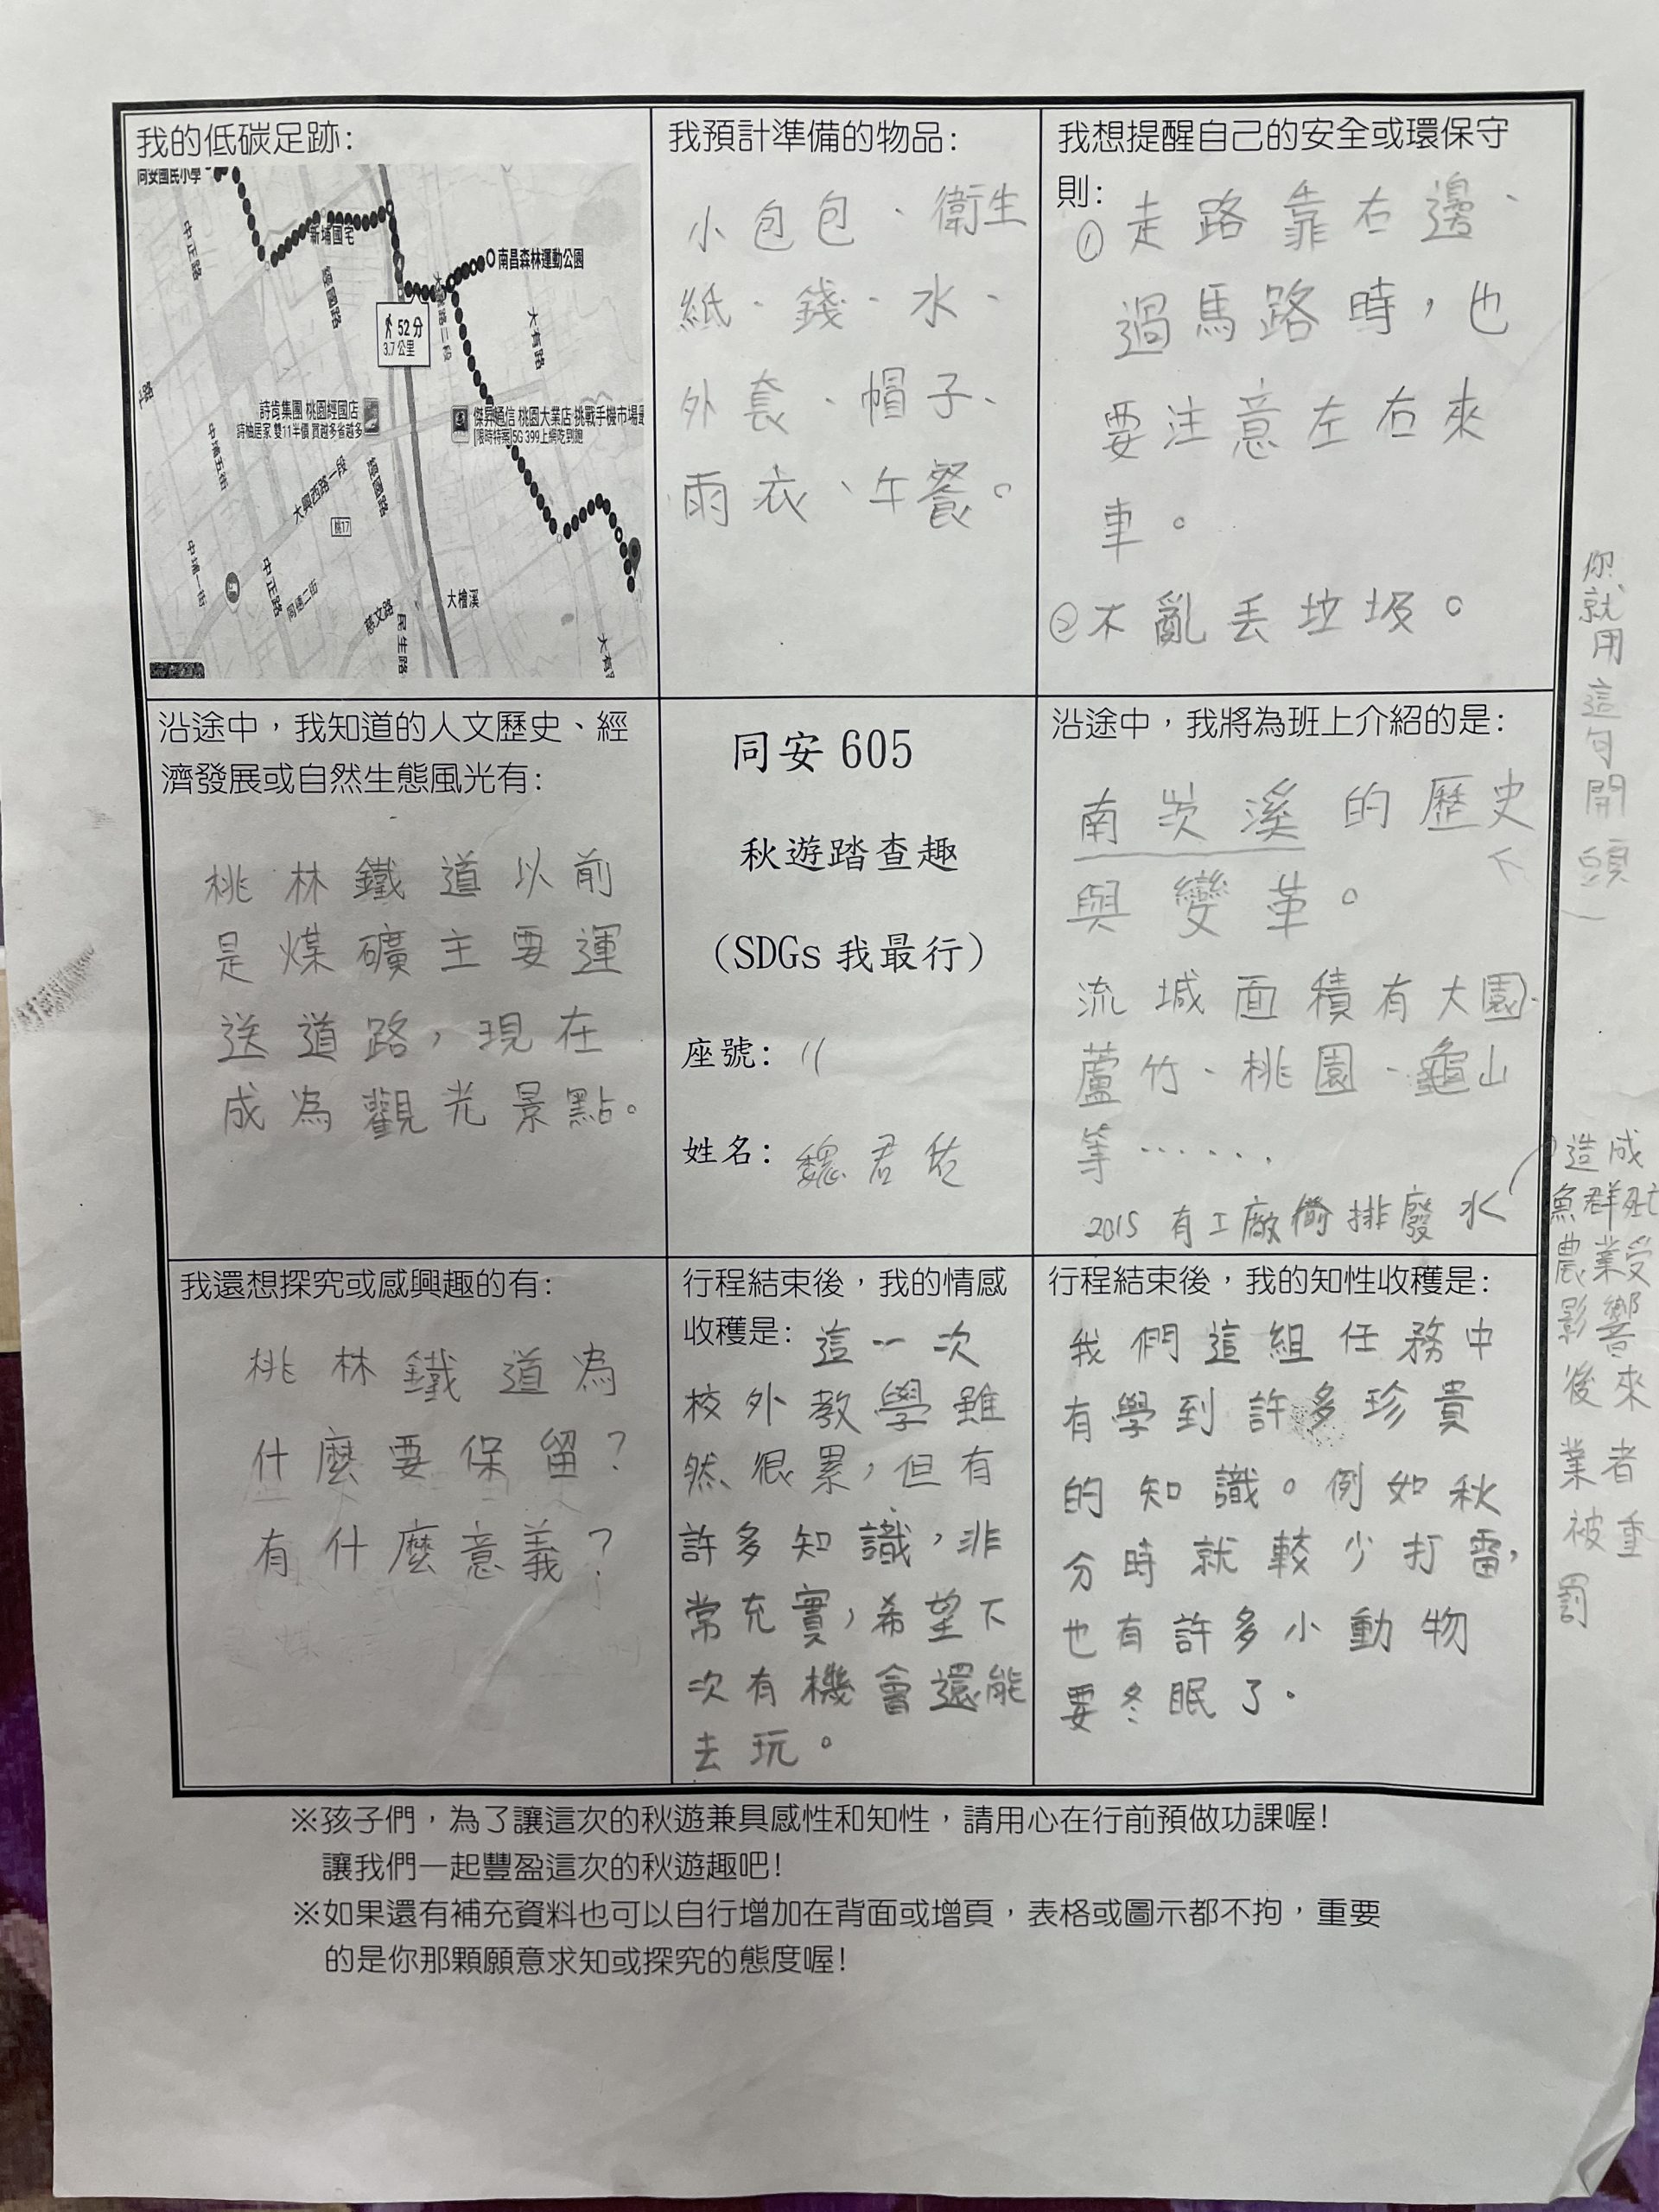 我的低碳足跡：
同安國民小學
新埔國宅
中正路
經國路
南昌森林運動公園
大有路
52 分
3.7 公里
詩肯集團 桃園經國店
詩柚居家 雙11半價 買越多省越多
傑昇通信 桃園大業店 挑戰手機市場最
[限時特案]5G 399上網吃到飽
中埔五街
大興西路一段
經國路
桃17
中埔一街
中正路
同德二街
慈文路
民生路
大檜溪
大有
我預計準備的物品：
小包包、衛生
紙、錢、水、
外套、帽子、
雨衣、午餐。
我想提醒自己的安全或環保守
則：
①走路靠右邊、
過馬路時，也
要注意左右來
車。
②不亂丟垃圾。
沿途中，我知道的人文歷史、經
濟發展或自然生態風光有：
桃林鐵道以前
是煤礦主要運
送道路，現在
成為觀光景點。
同安 605
秋遊踏查趣
（SDGs 我最行）
座號：11
姓名：魏君
沿途中，我將為班上介紹的是：
南崁溪的歷史
與變革。
流域面積有大園、
蘆竹、桃園、龜山
等……
2015 有工廠偷排廢水
你就用這句開頭
造成
魚群死亡
農業受
影響
後來
業者
被重
罰
我還想探究或感興趣的有：
桃林鐵道為
什麼要保留？
有什麼意義？
行程結束後，我的情感
收穫是：這一次
校外教學雖
然很累，但有
許多知識，非
常充實，希望下
次有機會還能
去玩。
行程結束後，我的知性收穫是：
我們這組任務中
有學到許多珍貴
的知識。例如秋
分時就較少打雷，
也有許多小動物
要冬眠了。
※孩子們，為了讓這次的秋遊兼具感性和知性，請用心在行前預做功課喔！
讓我們一起豐盈這次的秋遊趣吧！
※如果還有補充資料也可以自行增加在背面或增頁，表格或圖示都不拘，重要
的是你那顆願意求知或探究的態度喔！